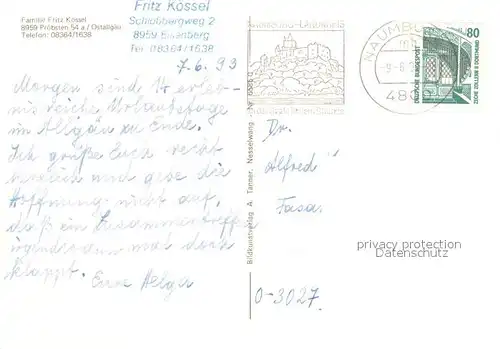 Familie Fritz Kössel
8959 Pröbsten 54 a / Ostallgäu
Telefon: 08364/1638
Fritz Kössel
Schloßbergweg 2
8959 Eisenberg
Tel. 08364/1638
7.6.93
Morgen sind 14 erleb-
nisreiche Urlaubstage
im Allgäu zu Ende.
Ich grüße Euch recht
herzlich und gebe die
Hoffnung nicht auf,
daß ein Zusammentreffen
irgendwann mal doch
klappt. Eure Helga
Bildkunstverlag A. Tanner, Nesselwang
NAUMBURG
48
80
DEUTSCHE BUNDESPOST
ZECHE ZOLLERN II DORTMUND
Dr.
Alfred
Fasa
O-3027.
privacy protection
Datenschutz